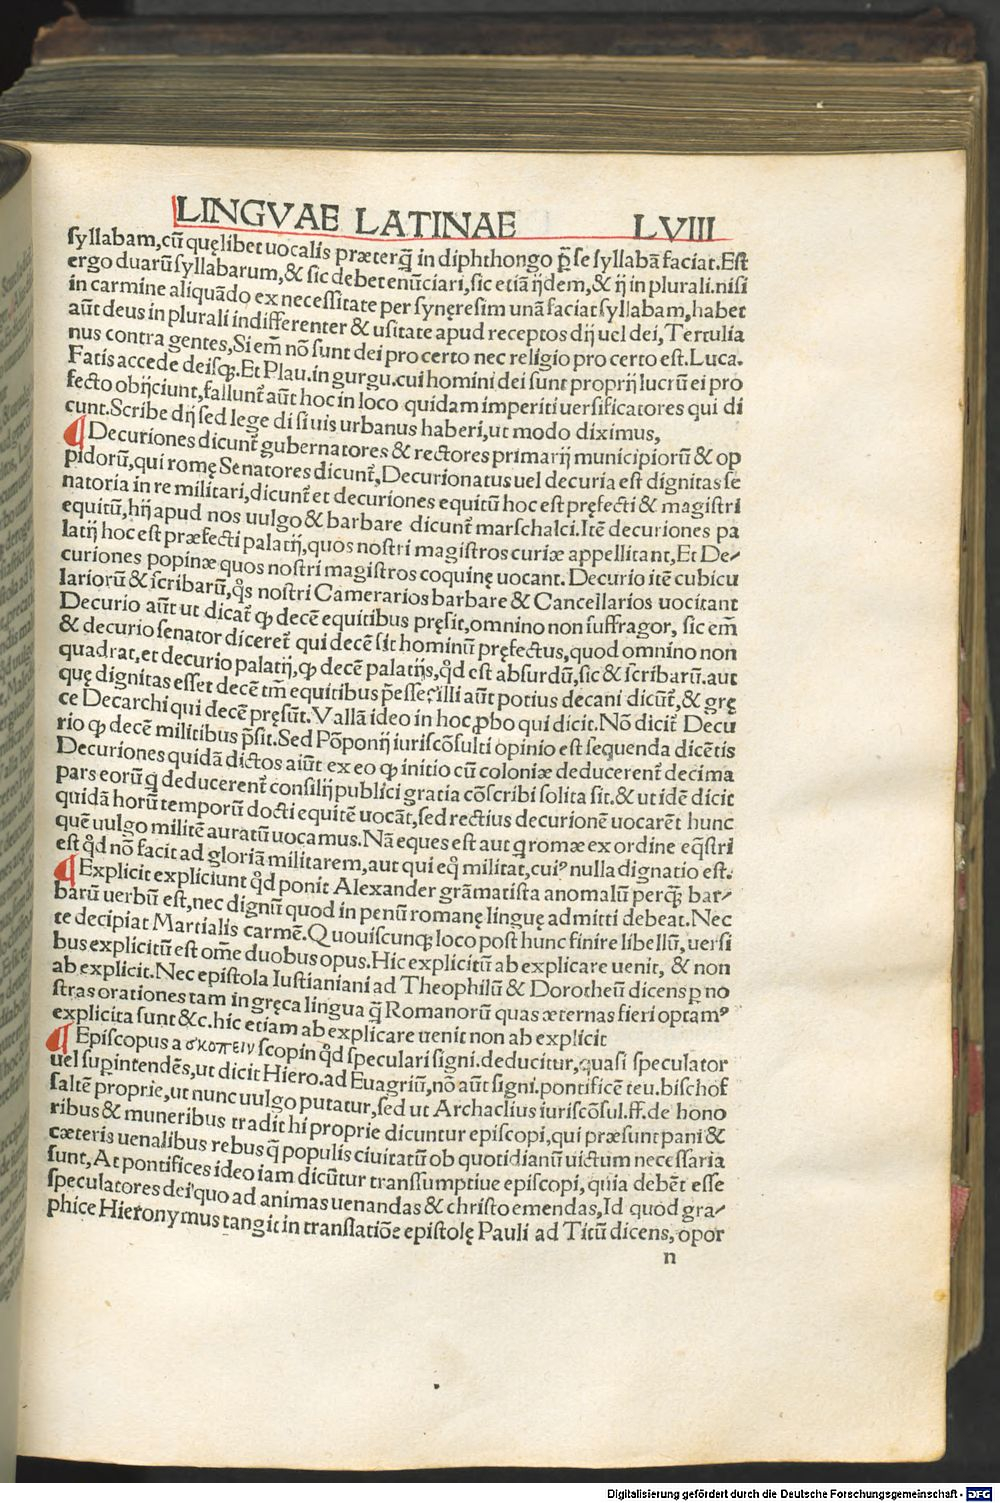 LINGVAE LATINAE LVIII
ſyllabam,cū quęlibet uocalis præterq̄ in diphthongo p̄ ſe ſyllabā faciat.Eſt
ergo duarū ſyllabarum,& ſic debet enūciari,ſic etiā ijdem,& ij in plurali.niſi
in carmine aliquādo ex neceſſitate per ſynęreſim unā faciat ſyllabam,habet
aūt deus in plurali indifferenter & uſitate apud receptos dij uel dei, Tertulia
nus contra gentes,Si em̄ nō ſunt dei pro certo nec religio pro certo eſt.Luca.
Fatis accede deiſq;.Et Plau.in gurgu.cui homini dei ſunt proprij lucrū ei pro
fecto obijciunt,fallunt᷑ aūt hoc in loco quidam imperiti uerſificatores qui di
cunt.Scribe dij ſed lege di ſi uis urbanus haberi,ut modo diximus,
¶ Decuriones dicunt᷑ gubernatores & rectores primarij municipiorū & op
pidorū,qui romę Senatores dicunt᷑,Decurionatus uel decuria eſt dignitas ſe
natoria in re militari,dicunt᷑ et decuriones equitū hoc eſt pręfecti & magiſtri
equitū,hij apud nos uulgo & barbare dicunt᷑ marſchalci.Itē decuriones pa
latij hoc eſt præfecti palatij,quos noſtri magiſtros curiæ appellitant,Et De⸗
curiones popinæ quos noſtri magiſtros coquinę uocant. Decurio itē cubicu
lariorū & ſcribarū,q̄s noſtri Camerarios barbare & Cancellarios uocitant
Decurio aūt ut dicat᷑ ꝙ decē equitibus pręſit,omnino non ſuffragor, ſic em̄
& decurio ſenator diceret᷑ qui decē ſit hominū pręfectus,quod omnino non
quadrat,et decurio palatij,ꝙ decē palatijs,q̄d eſt abſurdū,ſic & ſcribarū.aut
quę dignitas eſſet decē tm̄ equitibus p̄eſſe?illi aūt potius decani dicūt᷑,& grę
ce Decarchi qui decē pręſūt.Vallā ideo in hoc ꝓbo qui dicit.Nō dicit᷑ Decu
rio ꝙ decē militibus p̄ſit.Sed Pōponij iuriſcōſulti opinio eſt ſequenda dicētis
Decuriones quidā dictos aiūt ex eo ꝙ initio cū coloniæ deducerent᷑ decima
pars eorū q̄ deducerent᷑ conſilij publici gratia cōſcribi ſolita ſit.& ut idē dicit
quidā horū temporū docti equitē uocāt,ſed rectius decurionē uocarēt hunc
quē uulgo militē auratū uocamus.Nā eques eſt aut q romæ ex ordine eq̄ſtri
eſt q̄d nō facit ad gloriā militarem,aut qui eq̄ militat,cuiꝰ nulla dignatio eſt.
¶ Explicit expliciunt q̄d ponit Alexander grāmatiſta anomalū perq̄; bar⸗
barū uerbū eſt,nec dignū quod in penū romanę linguę admitti debeat.Nec
te decipiat Martialis carmē.Quouiſcunq; loco poſt hunc finire libellū,uerſi
bus explicitū eſt om̄e duobus opus.Hic explicitū ab explicare uenit, & non
ab explicit.Nec epiſtola Iuſtianiani ad Theophilū & Dorotheū dicens ꝑ no
ſtras orationes tam in gręca lingua q̄ Romanorū quas æternas fieri optamꝰ
explicita ſunt &c.hic etiam ab explicare uenit non ab explicit
¶ Epiſcopus a σκοπειν ſcopin q̄d ſpeculari ſigni.deducitur,quaſi ſpeculator
uel ſupintendēs,ut dicit Hiero.ad Euagriū,nō aūt ſigni.pontificē teu.biſchof
ſaltē proprie,ut nunc uulgo putatur,ſed ut Archaclius iuriſcōſul.ff.de hono
ribus & muneribus tradit hi proprie dicuntur epiſcopi,qui præſunt pani &
cæteris uenalibus rebus q̄ populis ciuitatū ob quotidianū uictum neceſſaria
ſunt,At pontifices ideo iam dicūtur tranſſumptiue epiſcopi,quia debēt eſſe
ſpeculatores dei'quo ad animas uenandas & chriſto emendas,Id quod gra⸗
phice Hieronymus tangit in tranſlatiōe epiſtolę Pauli ad Titū dicens,opor
n
Digitalisierung gefördert durch die Deutsche Forschungsgemeinschaft - DFG